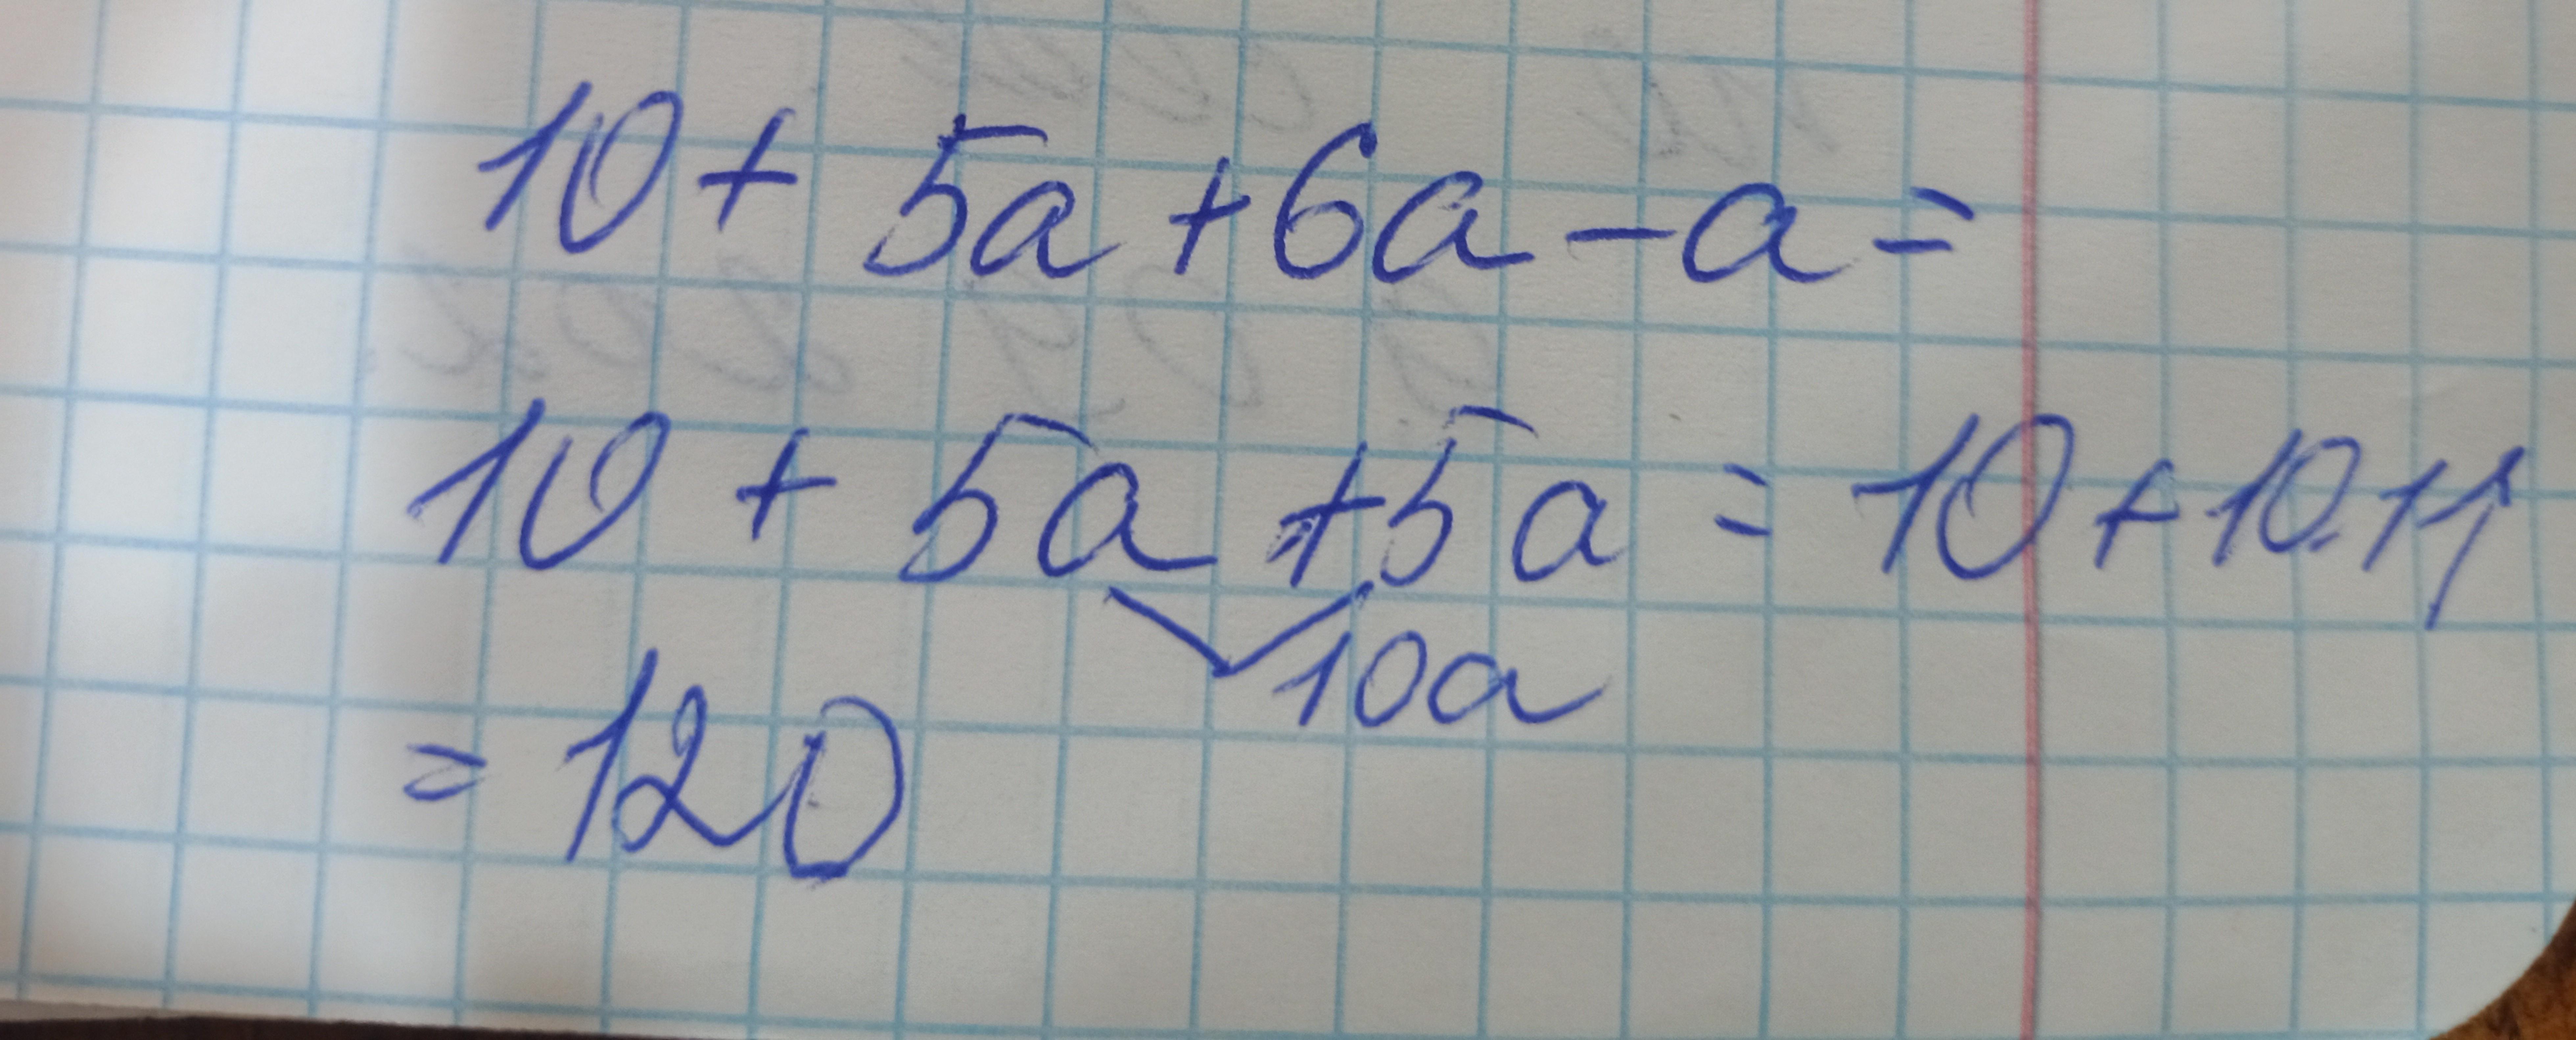 10 + 5a + 6a - a =
10 + 5a + 5a = 10 + 10.11
10a
= 120